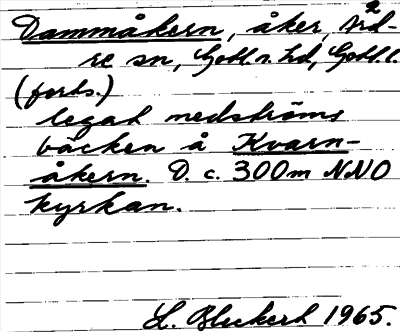 Dammåkern, åker, Ard-
re sn, Gotl. n. hd, Gotl. l.
2
(forts.)
legat nedströms
bäcken å Kvarn-
åkern. D. c. 300m NNO
kyrkan.
L. Bleckert 1965.